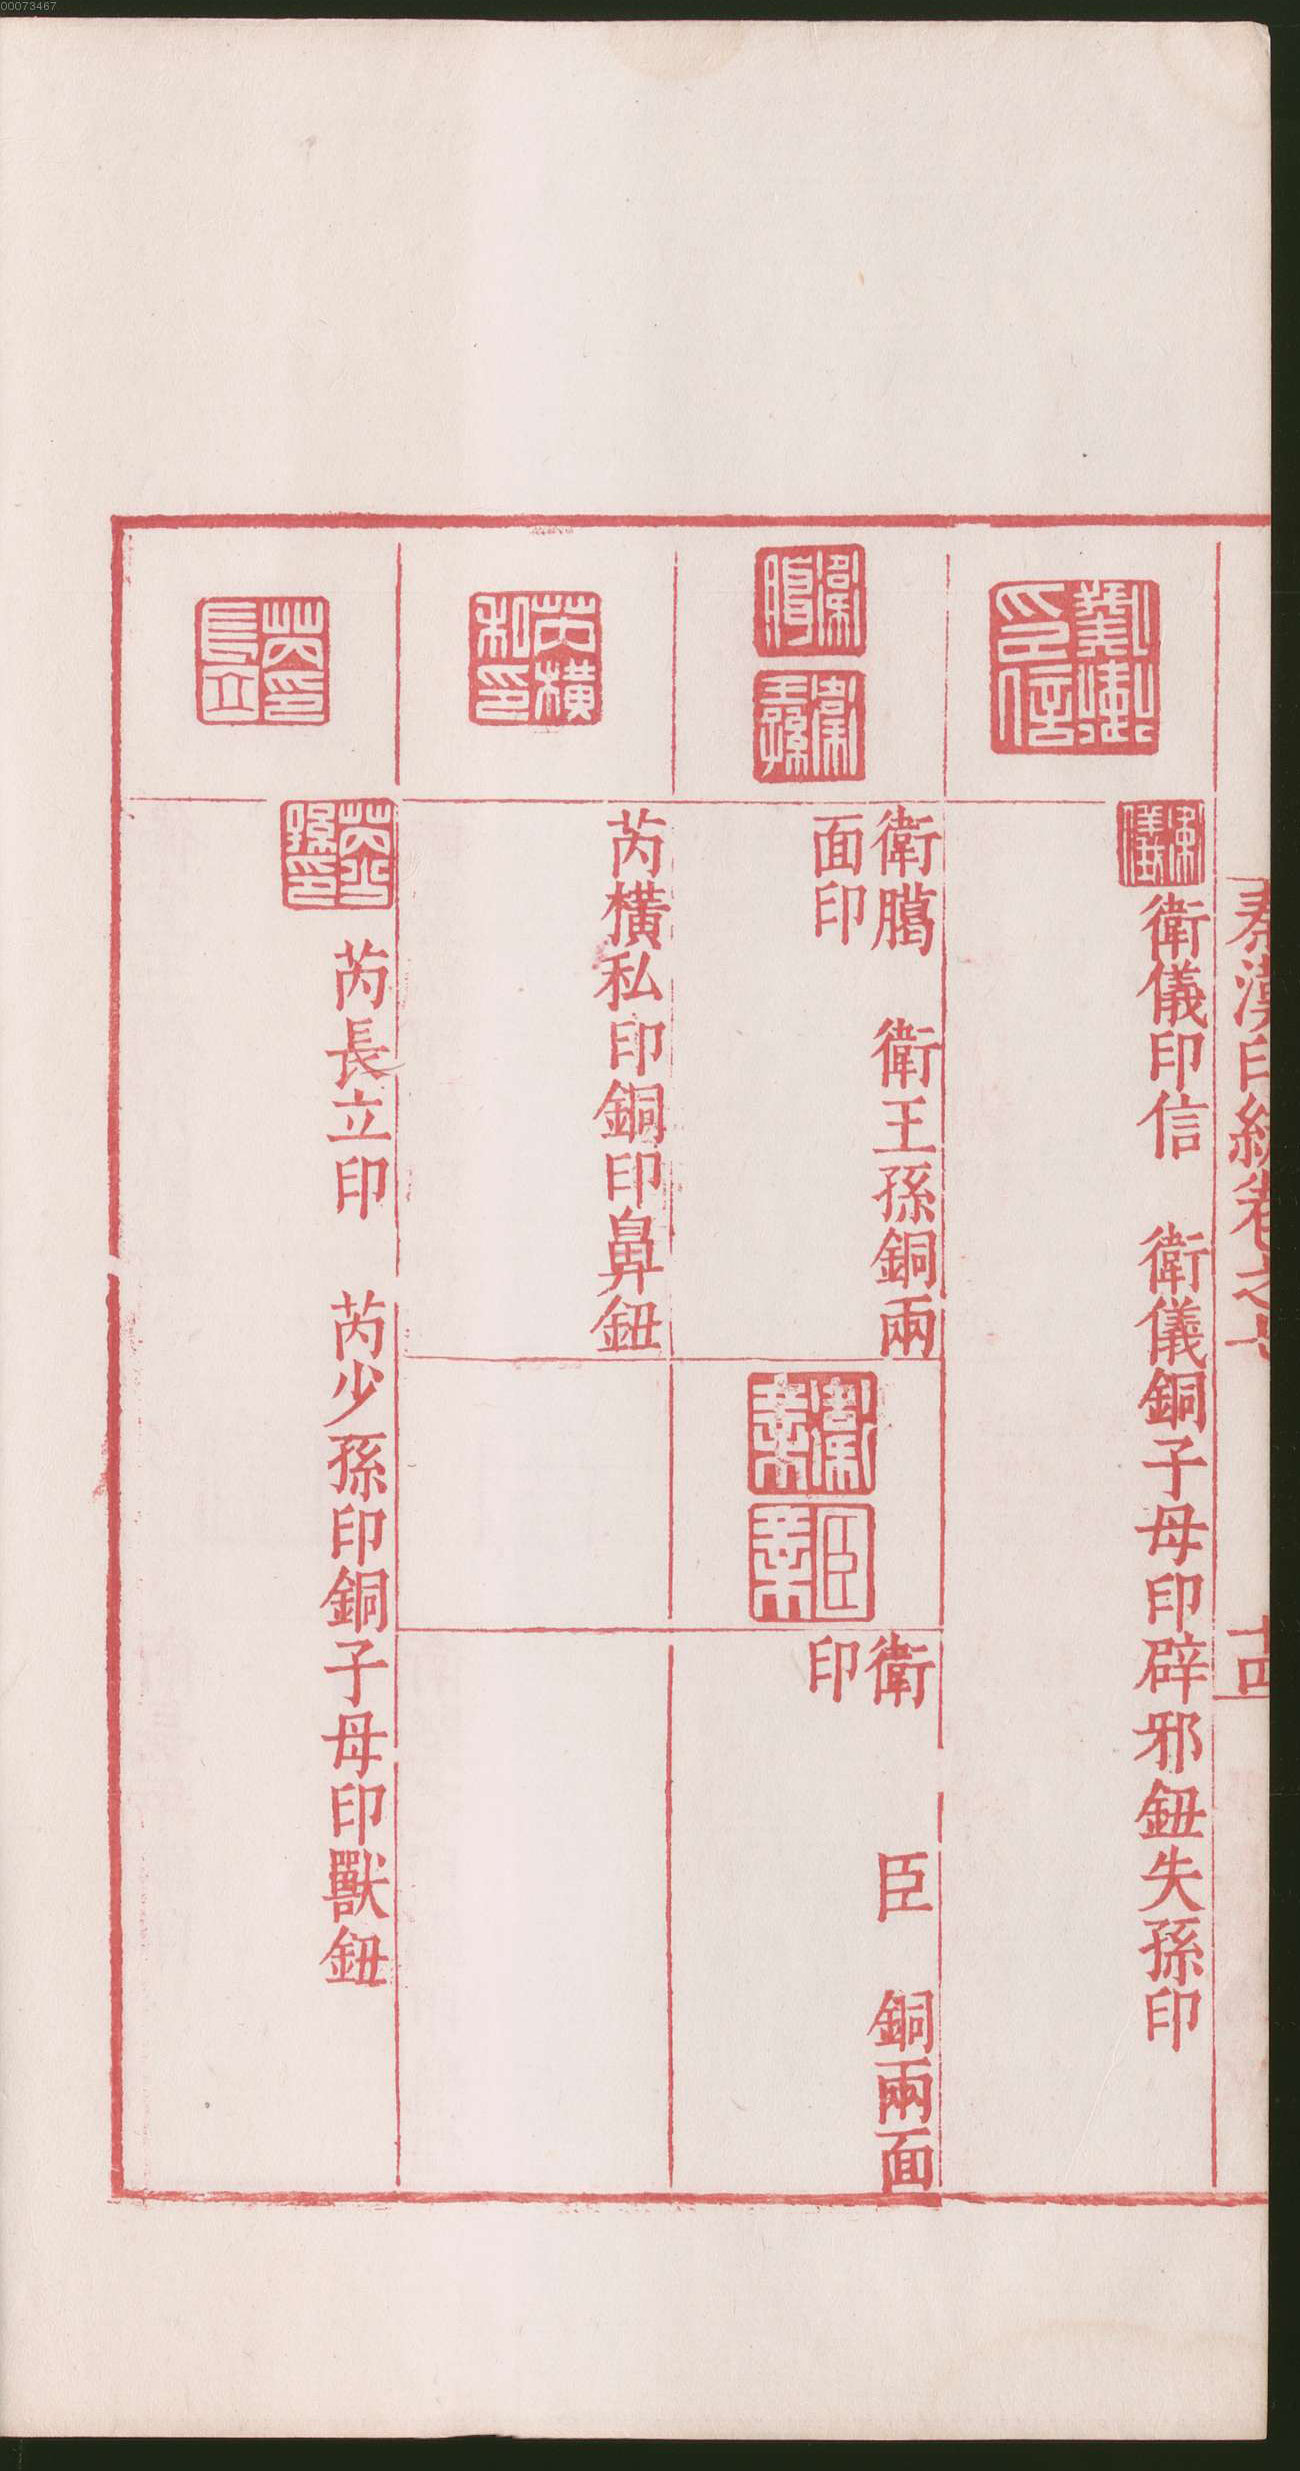 00073467
秦漢印統卷之七
十四
衛儀印信 衛儀銅子母印辟邪鈕失孫印
衛臈 衛王孫銅兩
面印
衛 臣 銅兩面
印
芮橫私印銅印鼻鈕
芮長立印 芮少孫印銅子母印獸鈕